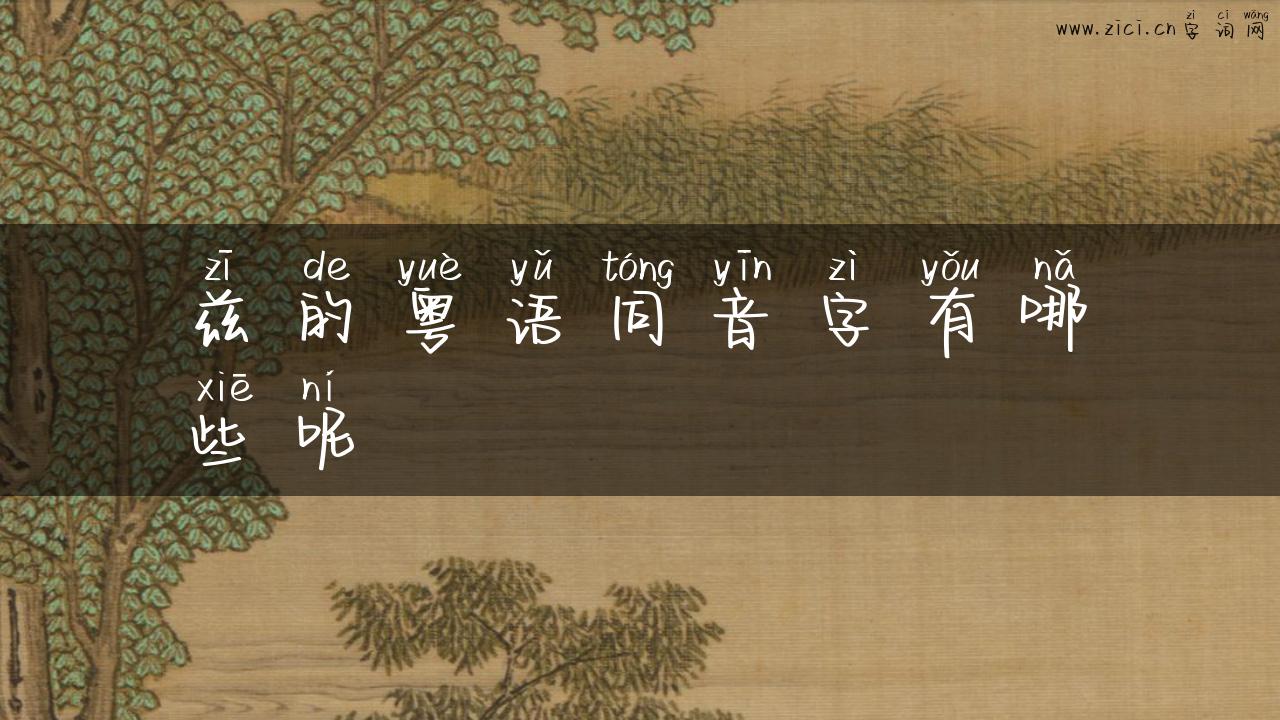 zì cí wǎng
www.zici.cn 字 词 网
zī de yuè yǔ tóng yīn zì yǒu nǎ
兹 的 粤 语 同 音 字 有 哪
xiē ní
些 呢